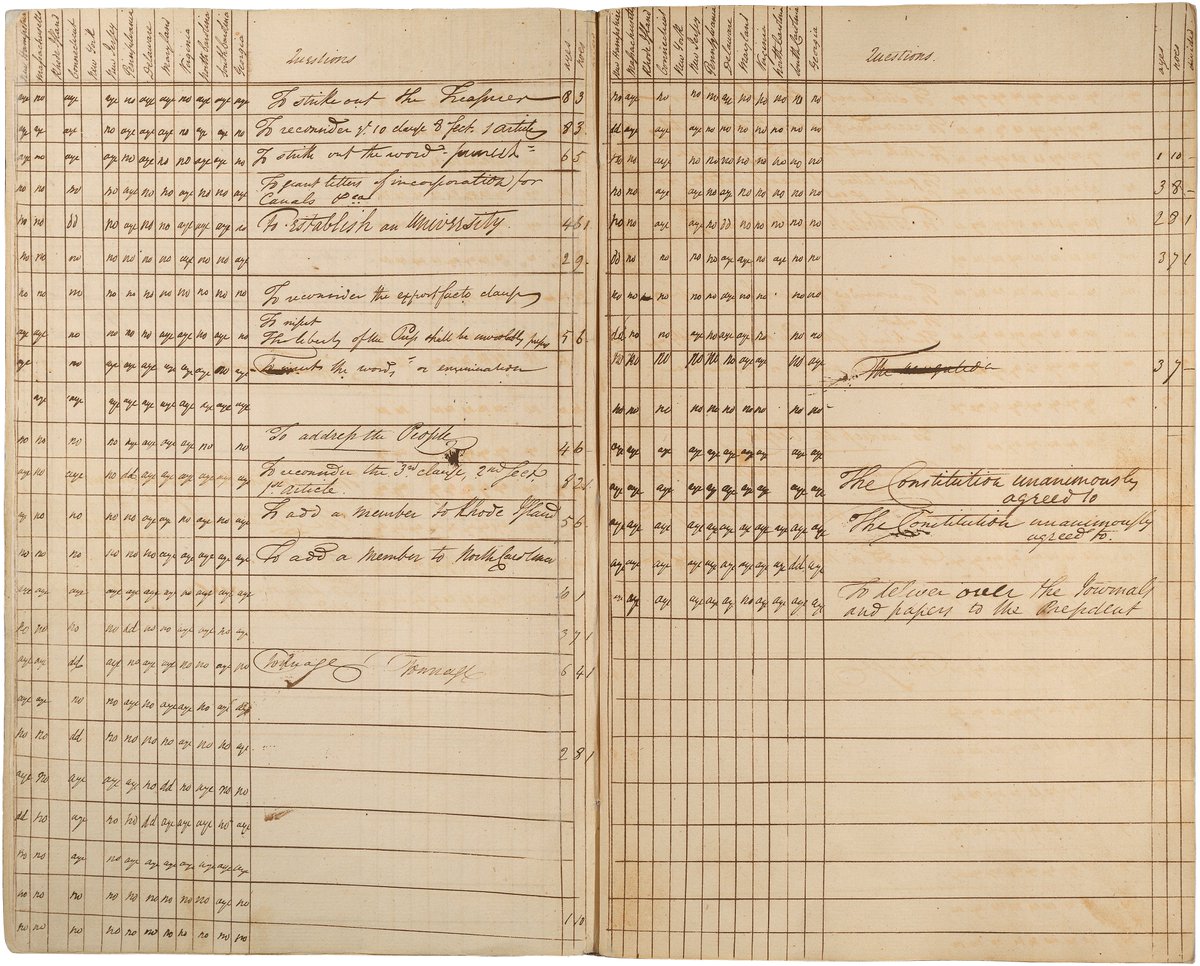 New Hampshire Massachusetts Rhode Island Connecticut New York New Jersey Pennsylvania Delaware Maryland Virginia North Carolina South Carolina Georgia Questions ayes noes
aye no aye aye no aye aye no aye aye aye To strike out the Treasurer 8 3
aye aye no aye aye aye no aye aye no To reconsider ye. 10 clause 8 sect. 1 article 8 3
aye no aye aye no aye no no aye aye no To strike out the word 6 5
no no no no aye no no aye no no aye To grant letters of incorporation for
Canals &ca
no no dd no aye no no aye aye aye no To establish an University. 4 6 1
no no no no no no no aye no no aye 2 9
no no no no no no no no no no To reconsider the expostfacto clause
To insert
aye aye no no no no aye aye no aye no The liberty of the Press shall be inviolably 5 6
aye no aye aye aye aye aye aye aye no aye To insert the words, or enumeration
aye aye aye aye aye aye aye aye aye aye
no no no no aye aye aye no no To address the People 4 6
aye no aye no dd aye aye aye aye aye aye To reconsider the 3rd. clause, 2nd. sect. 8 2 1
1st. article.
no no no no aye aye no aye no aye To add a member to Rhode Island 5 6
no no no no no no aye aye aye aye aye To add a member to North Carolina
aye aye aye aye aye aye no aye aye aye 6 1
no no no no dd no no aye aye no aye 3 7 1
aye aye dd aye no aye aye no no aye no Tonnage Tonnage 6 4 1
aye aye no no aye no aye aye no aye
no no dd no no no no aye no no aye 2 8 1
aye no aye aye aye no dd no aye no no
dd no aye no no dd aye aye aye no aye
no no aye no aye aye aye aye aye aye aye
no no no no no no no no no aye no
1 10
no no no no no no no no no no no
New Hampshire Massachusetts Rhode Island Connecticut New York New Jersey Pennsylvania Delaware Maryland Virginia North Carolina South Carolina Georgia Questions. ayes noes divided
no aye no no no aye no no no no no
dd aye aye aye no no no no no no no
no no aye no no no no no no no no 1 10 –
no no aye aye no aye no no no no no 3 8 –
no no aye aye no dd no no no no no 2 8 1
dd no no no no aye aye no aye no no 3 7 1
no no no no no aye no no no no
dd no no aye no aye aye no no no
no no no no no no aye aye no aye The 3 7 –
no no no no no no no no no no
aye aye aye aye aye aye aye aye aye aye
aye aye aye aye aye aye aye aye aye aye The Constitution unanimously
agreed to
aye aye aye aye aye aye aye aye aye aye aye The Constitution unanimously
agreed to.
aye aye aye aye aye aye aye aye aye dd aye
aye aye aye aye aye no aye aye aye aye To deliver over the Journals
and papers to the President